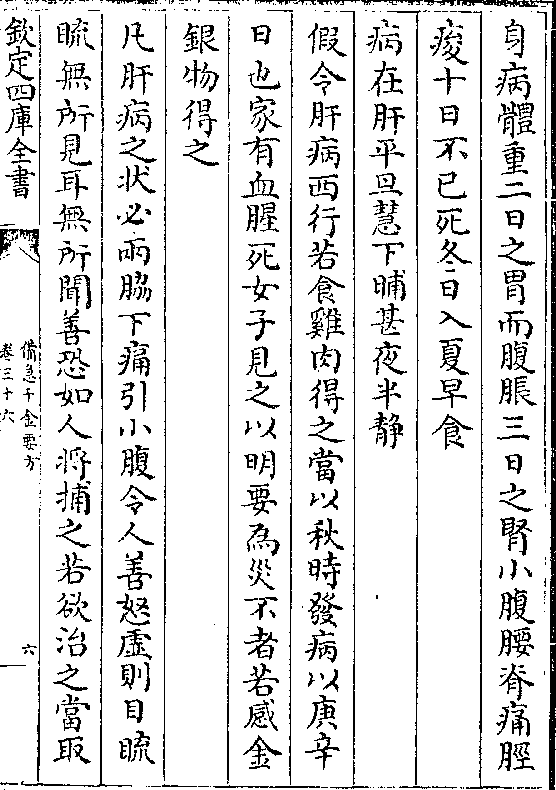 身病體重二日之胃而腹脹三日之腎小腹腰脊痛脛
痠十日不已死冬日入夏早食
病在肝平旦慧下晡甚夜半静
假令肝病西行若食雞肉得之當以秋時發病以庚辛
日也家有血腥死女子見之以明要為災不者若感金
銀物得之
凡肝病之狀必兩脇下痛引小腹令人善怒虚則目䀮
䀮無所見耳無所聞善恐如人将捕之若欲治之當取
欽定四庫全書
備急千金要方
卷三十六
六